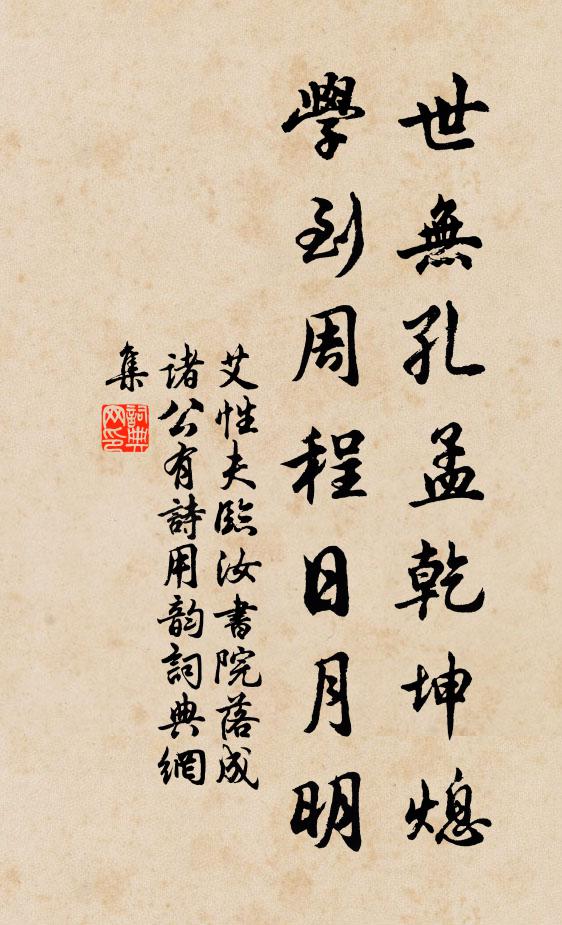 世無孔孟乾坤熄
學到周程日月明
艾性夫臨汝書院落成
諸公有詩用韵詞典網
集
詞典
网印